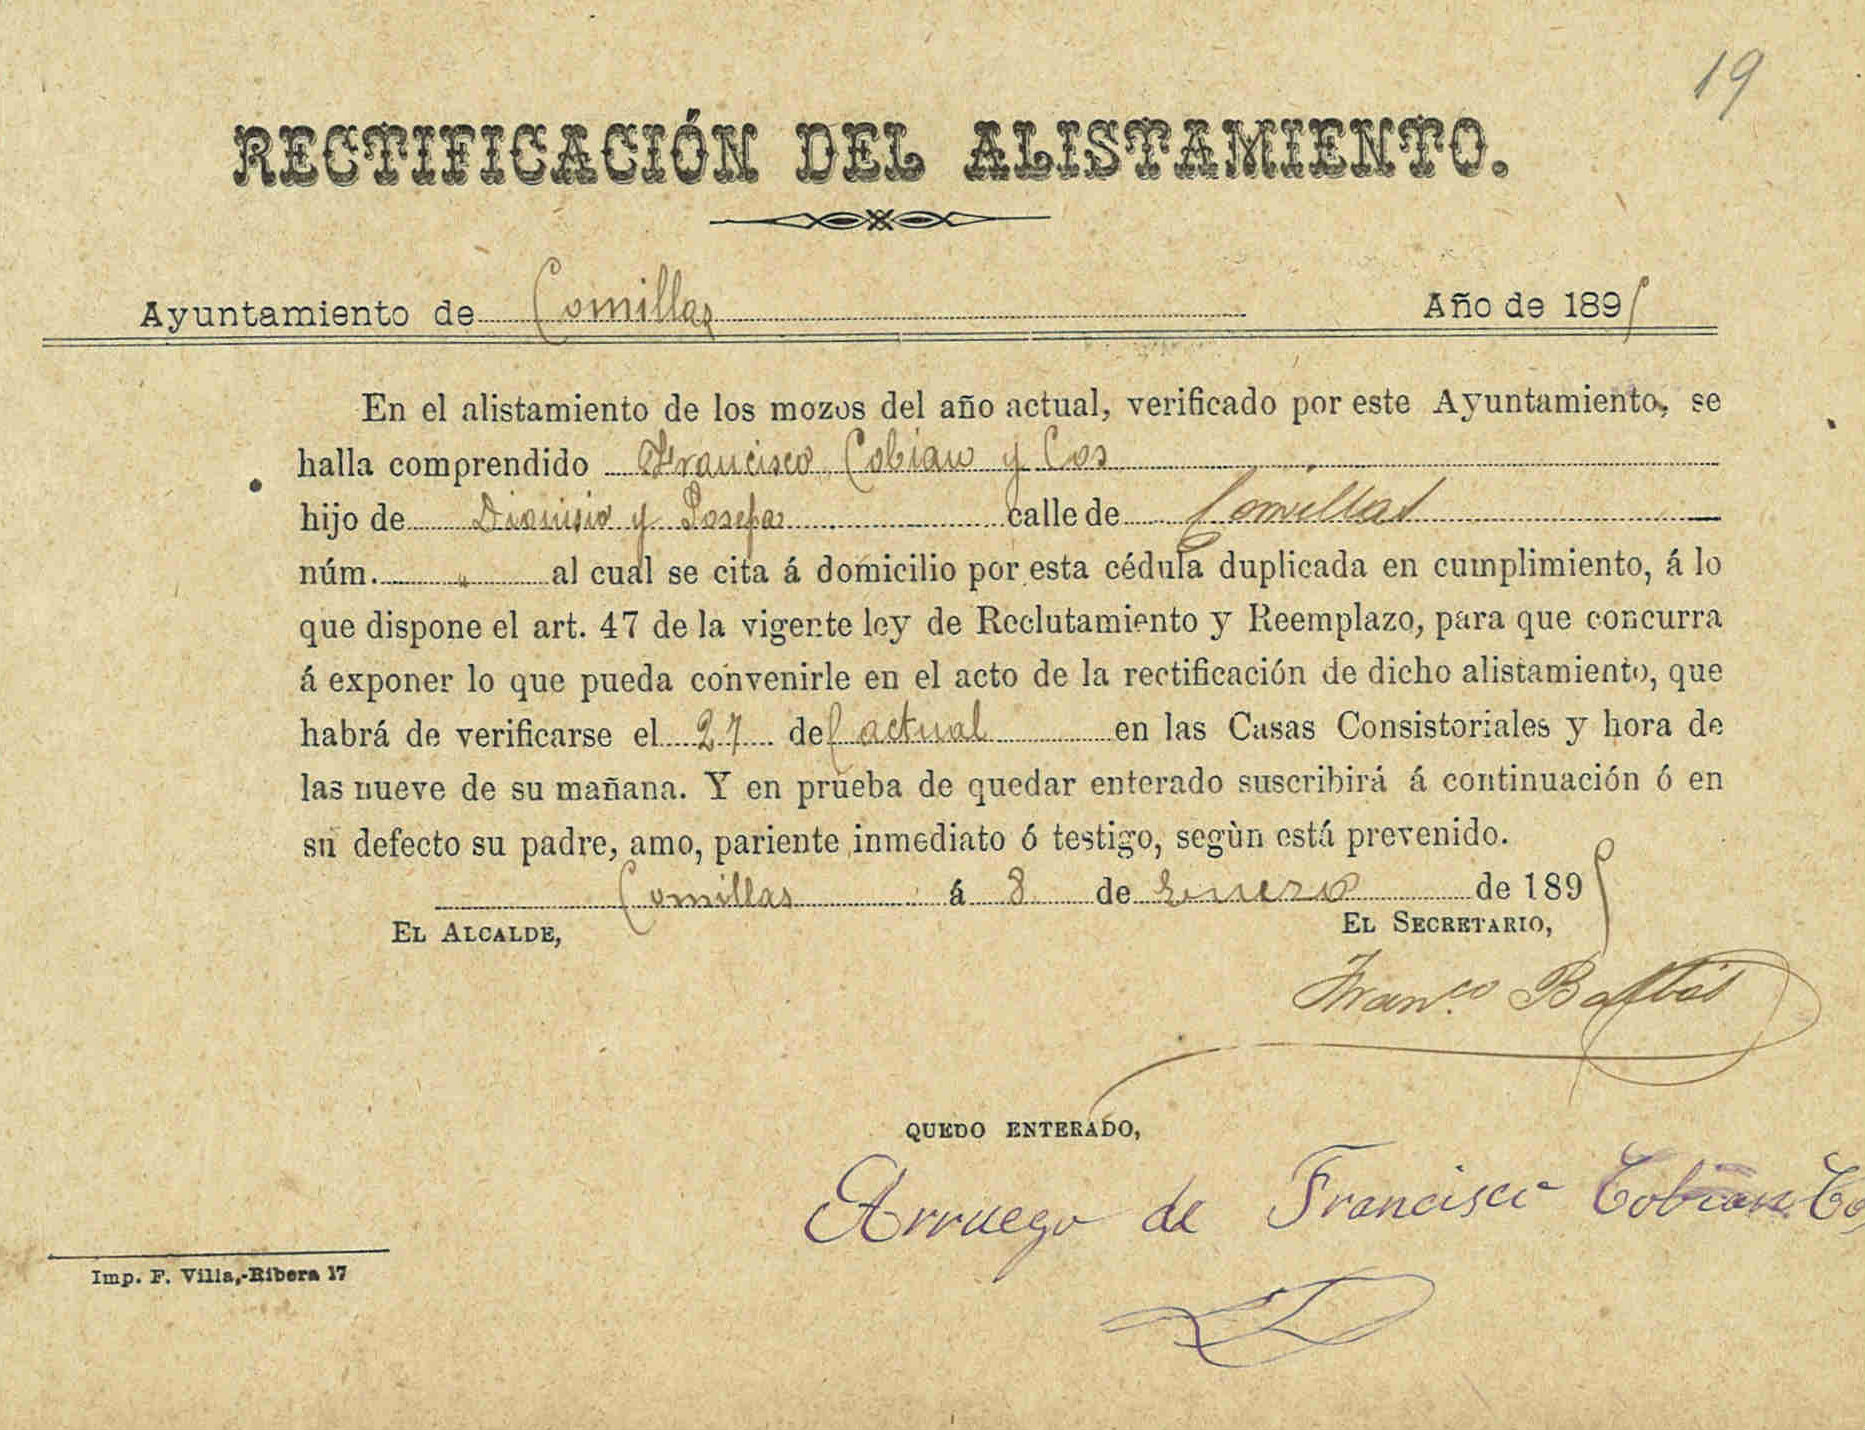 19
RECTIFICACIÓN DEL ALISTAMIENTO.
Ayuntamiento de Comillas Año de 189
En el alistamiento de los mozos del año actual, verificado por este Ayuntamiento, se
halla comprendido Francisco Cobian y Cos
hijo de Dionisio y Josefa calle de Comillas
núm. " al cual se cita á domicilio por esta cédula duplicada en cumplimiento, á lo
que dispone el art. 47 de la vigente ley de Reclutamiento y Reemplazo, para que concurra
á exponer lo que pueda convenirle en el acto de la rectificación de dicho alistamiento, que
habrá de verificarse el 27 del actual en las Casas Consistoriales y hora de
las nueve de su mañana. Y en prueba de quedar enterado suscribirá á continuación ó en
su defecto su padre, amo, pariente inmediato ó testigo, segùn está prevenido.
Comillas á 8 de Enero de 189
EL ALCALDE, EL SECRETARIO,
Fran.co
QUEDO ENTERADO,
Arruego de Francisco Cobian Co
Imp. F. Villa,-Ribera 17